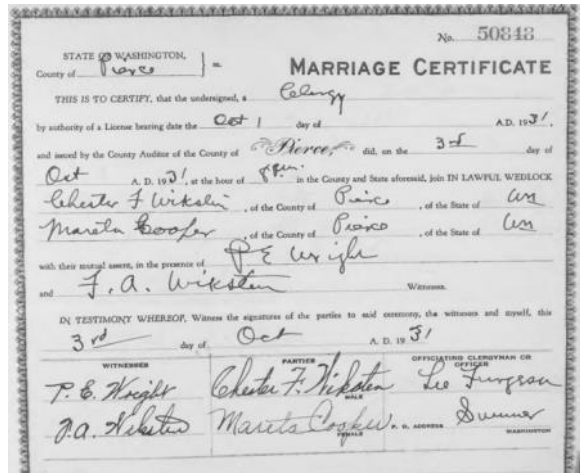 No. 50848
STATE OF WASHINGTON,
County of Pierce } ss.
MARRIAGE CERTIFICATE
THIS IS TO CERTIFY, that the undersigned, a Clergy
by authority of a License bearing date the Oct 1 day of A.D. 1931
and issued by the County Auditor of the County of Pierce, did, on the 3rd day of
Oct A. D. 1931, at the hour of 8 P.M. in the County and State aforesaid, join IN LAWFUL WEDLOCK
Chester F Wiksten, of the County of Pierce, of the State of Wn
Mareta Cooper, of the County of Pierce, of the State of Wn
with their mutual assent, in the presence of P E Wright
and F. A. Wiksten Witnesses.
IN TESTIMONY WHEREOF, Witness the signatures of the parties to said ceremony, the witnesses and myself, this
3rd day of Oct A. D. 1931
WITNESSES PARTIES OFFICIATING CLERGYMAN OR OFFICER
P. E. Wright Chester F. Wiksten Lee Furgeson
MALE
F. A. Wiksten Mareta Cooper P. O. ADDRESS Sumner
FEMALE WASHINGTON